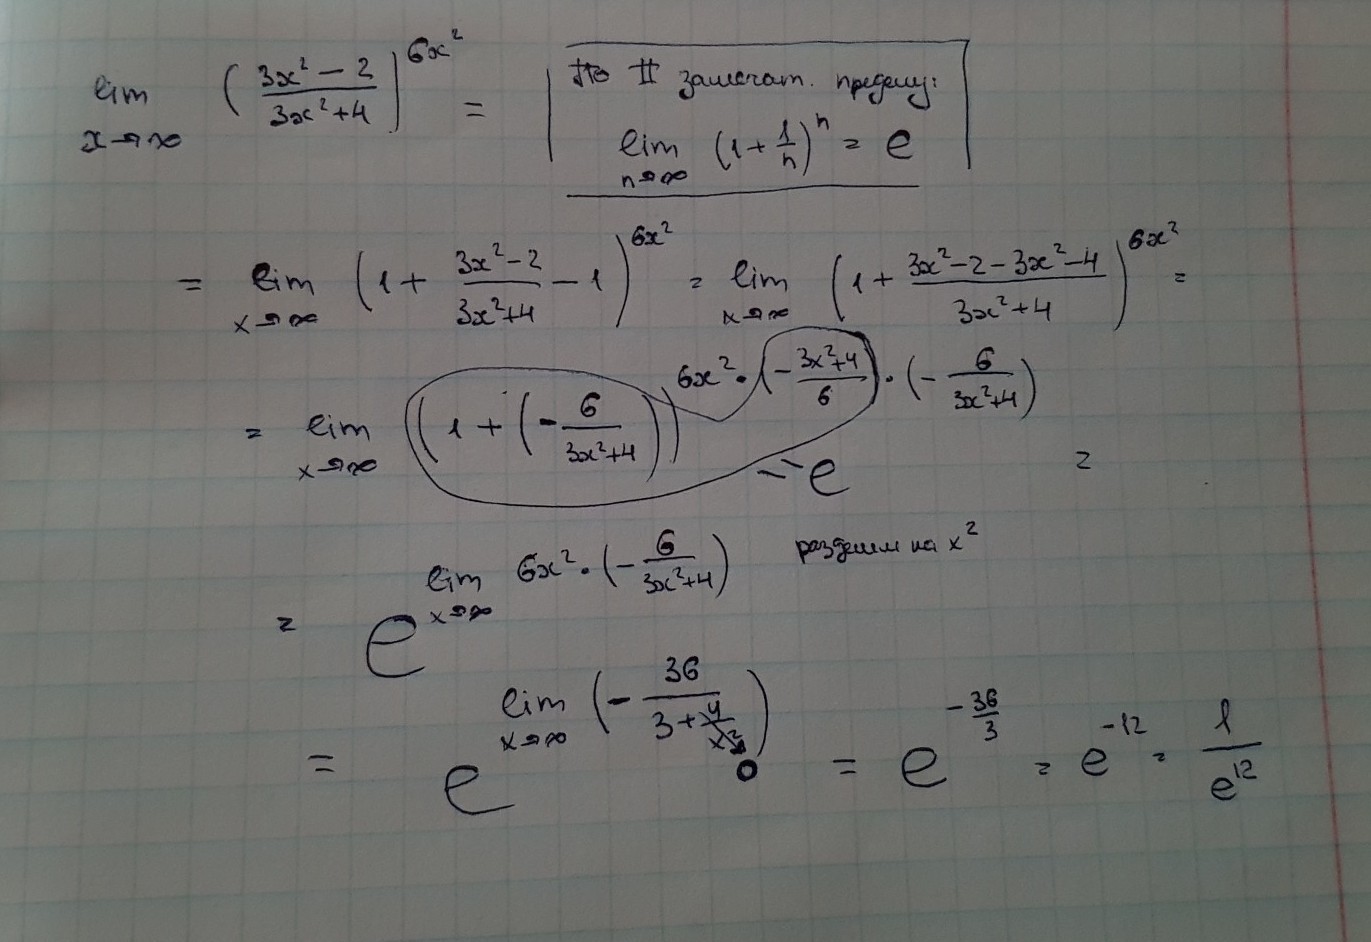 lim x→∞ (3x² − 2 / 3x² + 4)^6x² =
По II замечат. пределу:
lim n→∞ (1 + 1/n)^n = e
= lim x→∞ (1 + 3x² − 2 / 3x² + 4 − 1)^6x² = lim x→∞ (1 + 3x² − 2 − 3x² − 4 / 3x² + 4)^6x² =
= lim x→∞ ((1 + (− 6 / 3x² + 4))^6x² · (− 3x² + 4 / 6) · (− 6 / 3x² + 4) =
= e
= e^lim x→∞ 6x² · (− 6 / 3x² + 4) разделим на x²
= e^lim x→∞ (− 36 / 3 + 4/x²) 0 = e^−36/3 = e^−12 = 1 / e^12